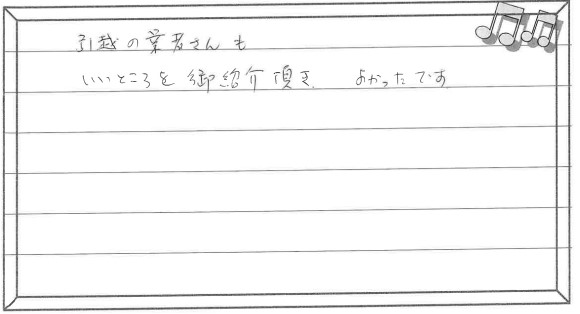 引越の業者さんも
いいところを御紹介頂き、よかったです